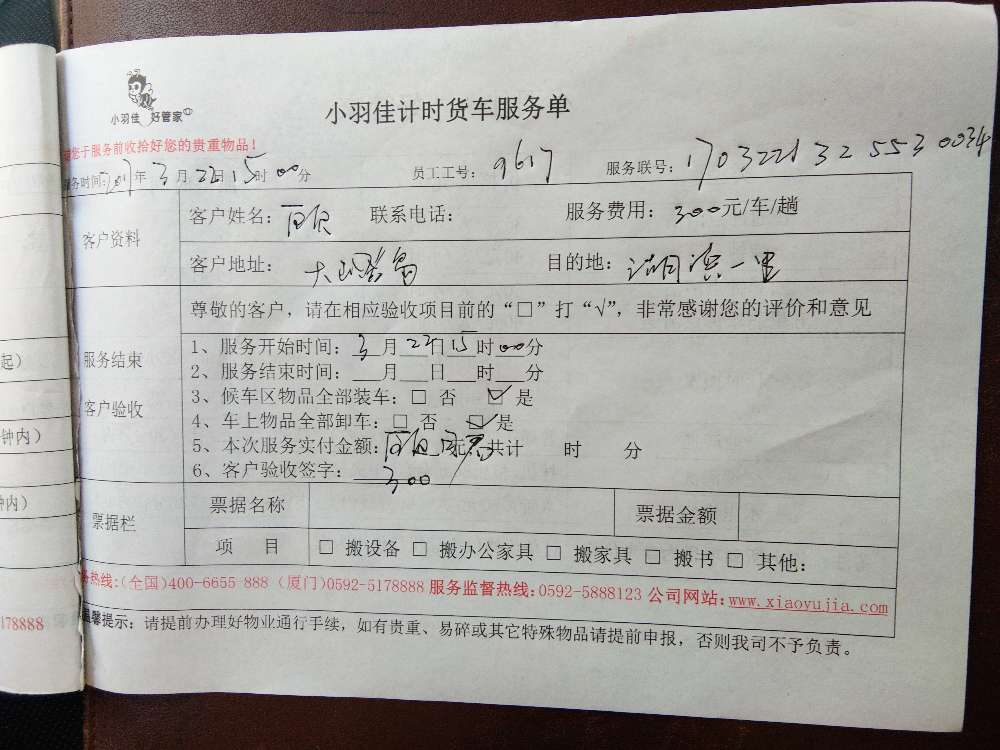 小羽佳 好管家
小羽佳计时货车服务单
您于服务前收拾好您的贵重物品！
务时间: 年 3 月 22 日 15 时 00 分 员工工号: 9617 服务联号: 170322132553003
客户资料
客户姓名: 联系电话: 服务费用: 300元/车/趟
客户地址: 目的地: 湖滨一里
尊敬的客户，请在相应验收项目前的“□”打“√”，非常感谢您的评价和意见
服务结束
客户验收
1、服务开始时间: 3 月 22 日 15 时 00 分
2、服务结束时间: ___月___日___时___分
3、候车区物品全部装车: □ 否 ☑ 是
4、车上物品全部卸车: □ 否 ☑ 是
5、本次服务实付金额: 元 共计 时 分
6、客户验收签字: 300
票据栏
票据名称 票据金额
项 目 □ 搬设备 □ 搬办公家具 □ 搬家具 □ 搬书 □ 其他:
热线:(全国)400-6655 888 (厦门)0592-5178888 服务监督热线:0592-5888123 公司网站:www.xiaoyujia.com
馨提示: 请提前办理好物业通行手续，如有贵重、易碎或其它特殊物品请提前申报，否则我司不予负责。
起）
钟内）
钟内）
178888